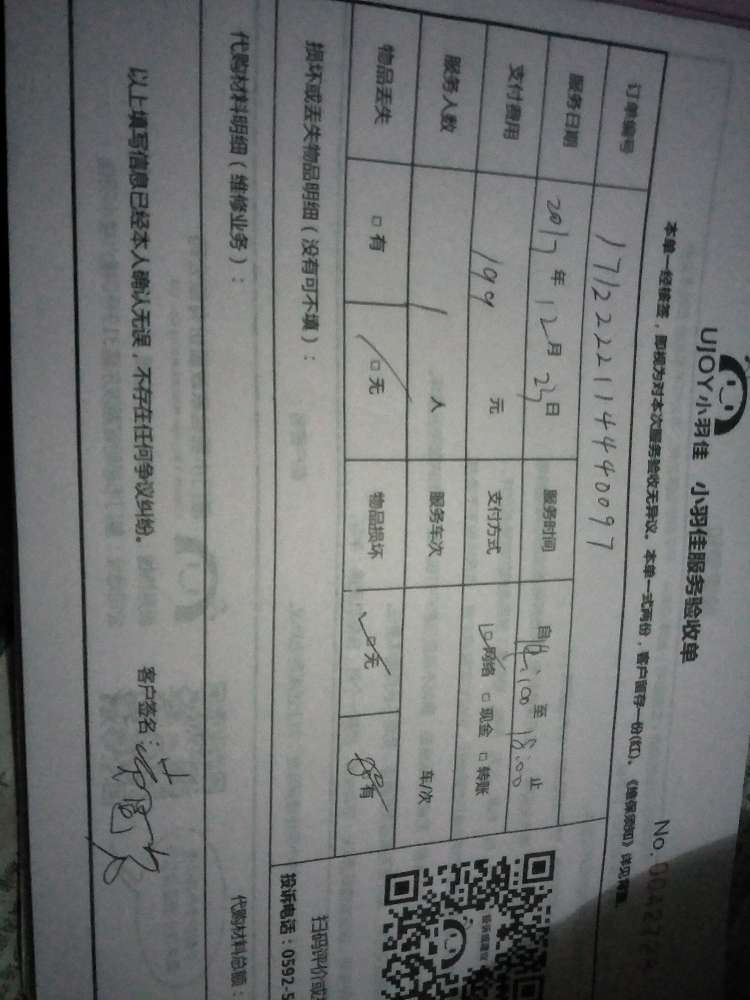 UJOY小羽佳 小羽佳服务验收单
No.
本单一经接签，即视为对本次服务验收无异议。本单一式两份，客户留存一份(红)。《维保须知》详见背面。
订单编号 1712222114440097
服务日期 2017年12月23日 服务时间 自14:00至18:00止
支付费用 199元 支付方式 ☑网络 □现金 □转账
服务人数 1人 服务车次 车/次
物品丢失 □有 □无 物品损坏 □无 □有
损坏或丢失物品明细（没有可不填）：
扫码评价或
投诉电话：0592-5
代购材料明细（维修业务）：
代购材料总额：
以上填写信息已经本人确认无误，不存在任何争议纠纷。 客户签名：